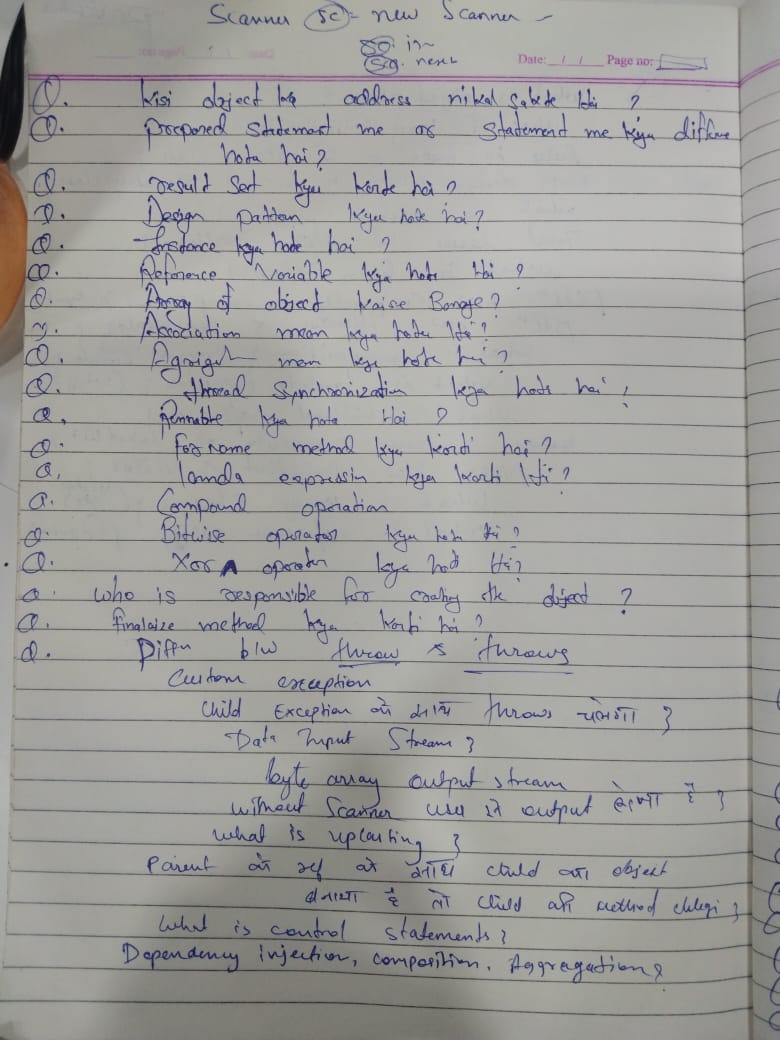 Scanner sc = new Scanner
in
Date: / / Page no:
Q. Kisi object ka address nikal sakte Hai ?
Q. prepared Statement me or Statement me kya
hota hai ?
Q. result Set kya karte hai ?
Q. Design kya hote hai ?
Q. Instance kya hote hai ?
Q. Reference Variable kya hote Hai ?
Q. Array of object kaise Banaye ?
Association mean kya hota Hai ?
Q. mean kya hote hai ?
Q. thread Synchronization kya hote hai ?
Q. Runnable kya hota Hai ?
Q. for name method kya karti hai ?
Q. lamda expression kya karti Hai ?
Q. Compound operation
Q. Bitwise operator kya hota hai ?
Q. Xor ^ operator kya hota Hai ?
Q. Who is responsible for the object ?
Q. method kya karti hai ?
Q. b/w throw & throws
Custom exception
Child Exception के साथ throws चलेगा ?
Data Input Stream ?
byte array output stream
without Scanner output है ?
what is upcasting ?
Parent के ref के साथ child का object
बनाया है तो child की method chlegi ?
What is control statements ?
Dependency injection, composition, Aggregation ?